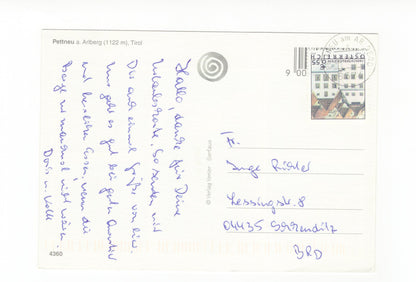 Pettneu a. Arlberg (1122 m), Tirol
Hallo danke für Deine
Urlaubskarte. So senden wir
Dir auch einmal Grüße von hier.
Uns geht es gut bei guten
und herrlichen Essen, wenn die
Berge nur manchmal nicht wären.
Doris u.
4360
© Verlag
ÖSTERREICH
9 00
Fr.
Inge
Lessingstr. 8
04435 Schkeuditz
BRD